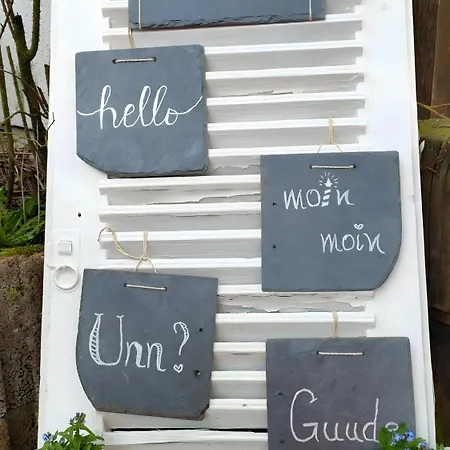 hello
moin
moin
Unn?
Guude